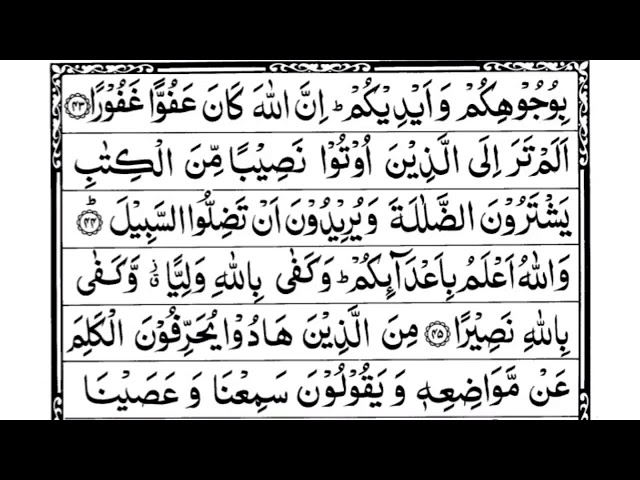 بِوُجُوْهِكُمْ وَ اَيْدِيْكُمْ ؕ اِنَّ اللّٰهَ كَانَ عَفُوًّا غَفُوْرًا ﴿۴۳﴾
اَلَمْ تَرَ اِلَى الَّذِيْنَ اُوْتُوْا نَصِيْبًا مِّنَ الْكِتٰبِ
يَشْتَرُوْنَ الضَّلٰلَةَ وَيُرِيْدُوْنَ اَنْ تَضِلُّوا السَّبِيْلَ ؕ﴿۴۴﴾
وَاللّٰهُ اَعْلَمُ بِاَعْدَآئِكُمْ ؕ وَكَفٰى بِاللّٰهِ وَلِيًّا ۗۙ وَّكَفٰى
بِاللّٰهِ نَصِيْرًا ﴿۴۵﴾ مِنَ الَّذِيْنَ هَادُوْا يُحَرِّفُوْنَ الْكَلِمَ
عَنْ مَّوَاضِعِهٖ وَ يَقُوْلُوْنَ سَمِعْنَا وَ عَصَيْنَا